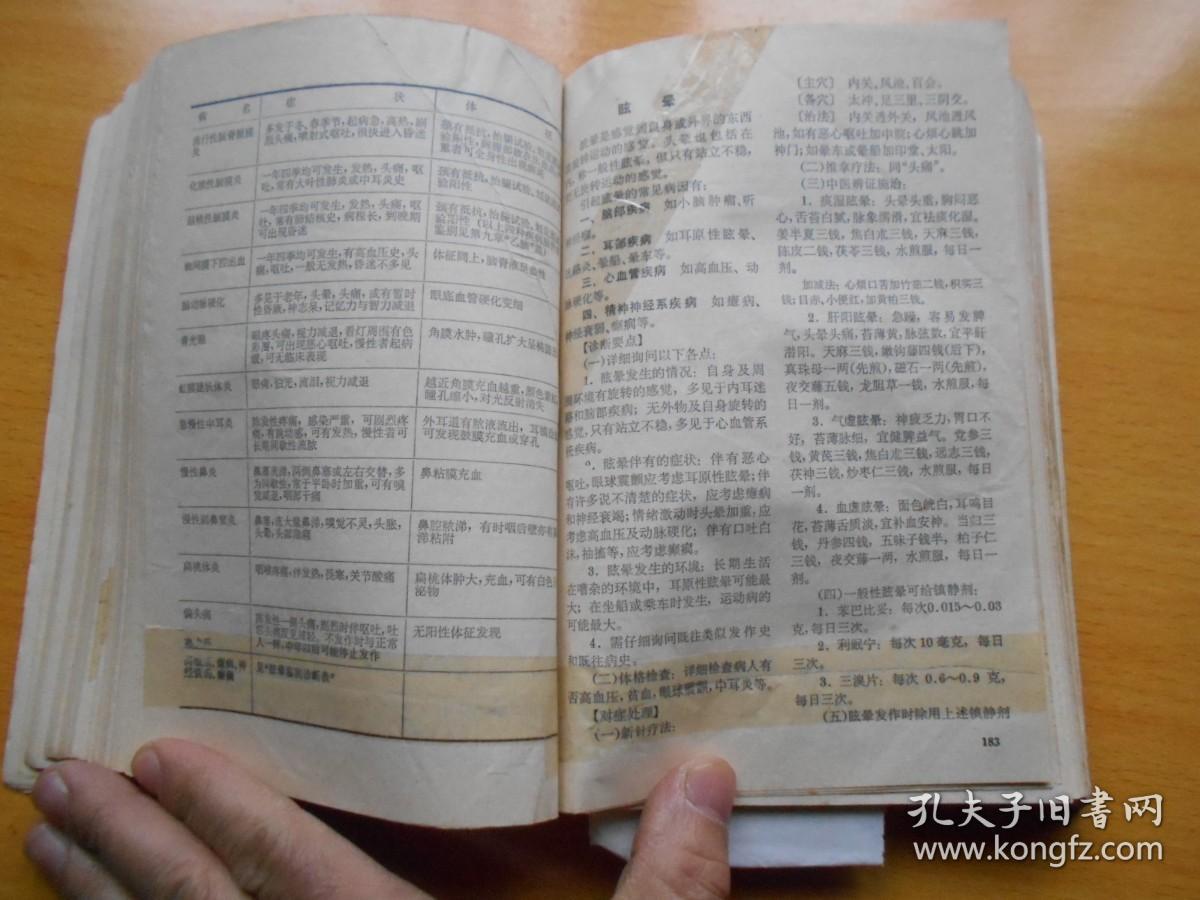 病 名
症 状
体
流行性脑脊髓膜
炎
多发于冬、春季节，起病急，高热，剧
烈头痛，喷射式呕吐，很快进入昏迷
颈有抵抗，
化脓性脑膜炎
一年四季均可发生，发热，头痛，呕
吐，常有大叶性肺炎或中耳炎史
颈有抵抗，
验阳性
结核性脑膜炎
一年四季均可发生，发热，头痛，呕
吐，常有肺结核史，病程长，到晚期
可出现昏迷
颈有抵抗，
蛛网膜下腔出血
一年四季均可发生，有高血压史，头
痛，呕吐，一般无发热，昏迷不多见
体征同上，脑脊液呈血性
脑动脉硬化
多见于老年，头晕，头痛，或有暂时
性昏厥，神志呆，记忆力与智力减退
眼底血管硬化变细
青光眼
眼疼头痛，视力减退，看灯周围有色
彩圈，可出现恶心呕吐，慢性者起病
缓，可无临床表现
角膜水肿，瞳孔扩大呈椭
虹膜睫状体炎
眼痛，怕光，流泪，视力减退
越近角膜充血越重，颜色
瞳孔缩小，对光反射消失
急慢性中耳炎
长期间歇性流脓
外耳道有脓液流出，耳镜
可发现鼓膜充血或穿孔
慢性鼻炎
鼻塞流涕，两侧鼻塞或左右交替，多
为间歇性，常于平卧时加重，可有嗅
觉减退，咽部干痛
鼻粘膜充血
慢性副鼻窦炎
鼻塞，流大量鼻涕，嗅觉不灵，头胀，
头晕，头部隐痛
鼻腔脓涕，有时咽后壁亦有
涕粘附
扁桃体炎
咽喉疼痛，伴发热，畏寒，关节酸痛
扁桃体肿大，充血，可有白色
泌物
偏头痛
无阳性体征发现
眩 晕
眩晕是感觉到自身或外界的东西
旋转运动的感觉。头晕也包括在
内，称一般性眩晕，但只有站立不稳，
而无旋转运动的感觉。
引起眩晕的常见病因有：
一、脑部疾病 如小脑肿瘤、听
神经瘤。
二、耳部疾病 如耳原性眩晕、
迷路炎、晕船、晕车等。
三、心血管疾病 如高血压、动
脉硬化等。
四、精神神经系疾病 如癔病、
神经衰弱、癫痫等。
【诊断要点】
(一)详细询问以下各点：
1．眩晕发生的情况：自身及周
围环境有旋转的感觉，多见于内耳迷
路和脑部疾病；无外物及自身旋转的
感觉，只有站立不稳，多见于心血管系
统疾病。
2．眩晕伴有的症状：伴有恶心
呕吐，眼球震颤应考虑耳原性眩晕；伴
有许多说不清楚的症状，应考虑癔病
和神经衰竭；情绪激动时头晕加重，应
考虑高血压及动脉硬化；伴有口吐白
沫，抽搐等，应考虑癫痫。
3．眩晕发生的环境：长期生活
在嘈杂的环境中，耳原性眩晕可能最
大；在坐船或乘车时发生，运动病的
可能最大。
4．需仔细询问既往类似发作史
和既往病史。
(二)体格检查：详细检查病人有
否高血压，贫血，眼球震颤，中耳炎等。
【对症处理】
(一)新针疗法：
〔主穴〕 内关、风池、百会。
〔备穴〕 太冲、足三里、三阴交。
〔治法〕 内关透外关，风池透风
池，如有恶心呕吐加中脘；心烦心跳加
神门；如晕车或晕船加印堂、太阳。
(二)推拿疗法：同“头痛”。
(三)中医辨证施治：
1．痰湿眩晕：头晕头重，胸闷恶
心，舌苔白腻，脉象濡滑，宜祛痰化湿。
姜半夏三钱，焦白朮三钱，天麻三钱，
陈皮二钱，茯苓三钱，水煎服，每日一
剂。
加减法：心烦口苦加竹茹二钱，枳实三
钱；目赤，小便红，加黄柏三钱。
2．肝阳眩晕：急躁，容易发脾
气，头晕头痛，苔薄黄，脉弦数，宜平肝
潜阳。天麻三钱，嫩钩藤四钱(后下)，
真珠母一两(先煎)，磁石一两(先煎)，
夜交藤五钱，龙胆草一钱，水煎服，每
日一剂。
3．气虚眩晕：神疲乏力，胃口不
好，苔薄脉细，宜健脾益气。党参三
钱，黄芪三钱，焦白朮三钱，远志三钱，
茯神三钱，炒枣仁三钱，水煎服，每日
一剂。
4．血虚眩晕：面色㿠白，耳鸣目
花，苔薄舌质淡，宜补血安神。当归三
钱，丹参四钱，五味子钱半，柏子仁
三钱，夜交藤一两，水煎服，每日一
剂。
(四)一般性眩晕可给镇静剂：
1．苯巴比妥：每次0.015～0.03
克，每日三次。
2．利眠宁：每次10毫克，每日
三次。
3．三溴片：每次 0.6～0.9 克，
每日三次。
(五)眩晕发作时除用上述镇静剂
183
孔夫子旧书网
www.kongfz.com